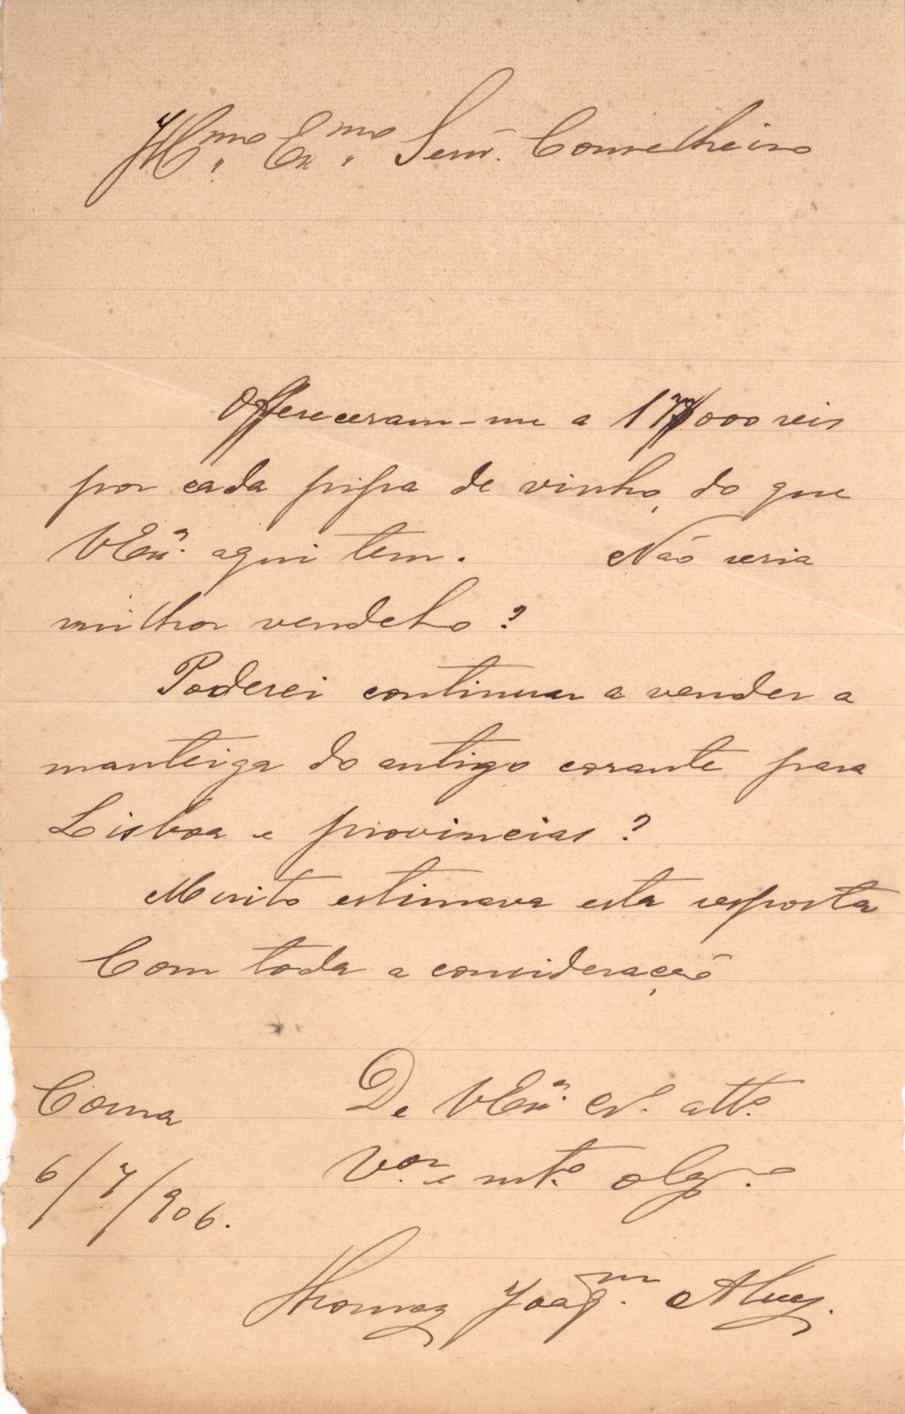 Ill.mo Ex.mo Senr. Conselheiro
Offereceram-me a 17$000 reis
por cada pipa de vinho, do que
V Ex.a aqui tem. Não seria
milhor vendelo?
Poderei continuar a vender a
manteiga do antigo corante para
Lisboa e provincias?
Muito estimava esta resposta
Com toda a consideração
De V Ex.a Cr.o att.o
V.or e mt.o obg.o
Coina
6/7/906.
Thomaz Joaq.m Alves.